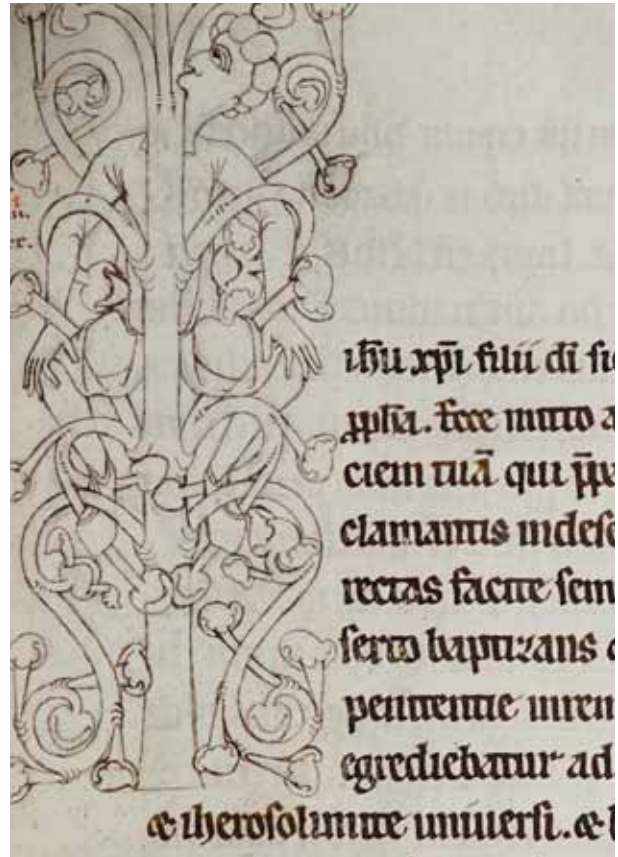 n.
er.
ihu xpi filii di
ppha. Ecce mitto a
ciem tuā qui p̄pa
clamantis indese
rectas facite sem
serto baptizans
penitentie inrem
egrediebatur ad
& iherosolimite universi. &